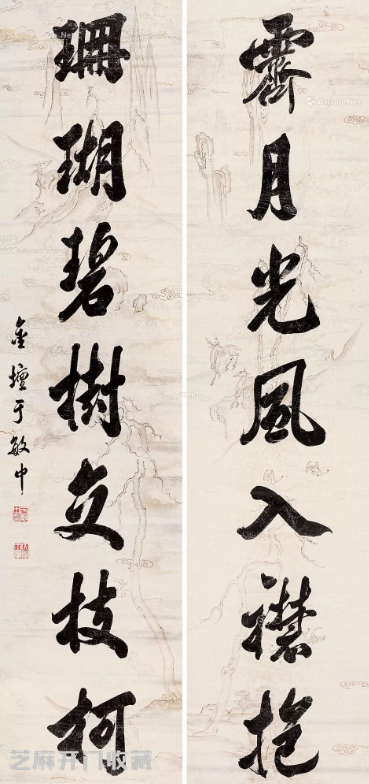 霽月光風入襟抱
珊瑚碧樹交枝柯
金壇于敏中
芝麻开门收藏